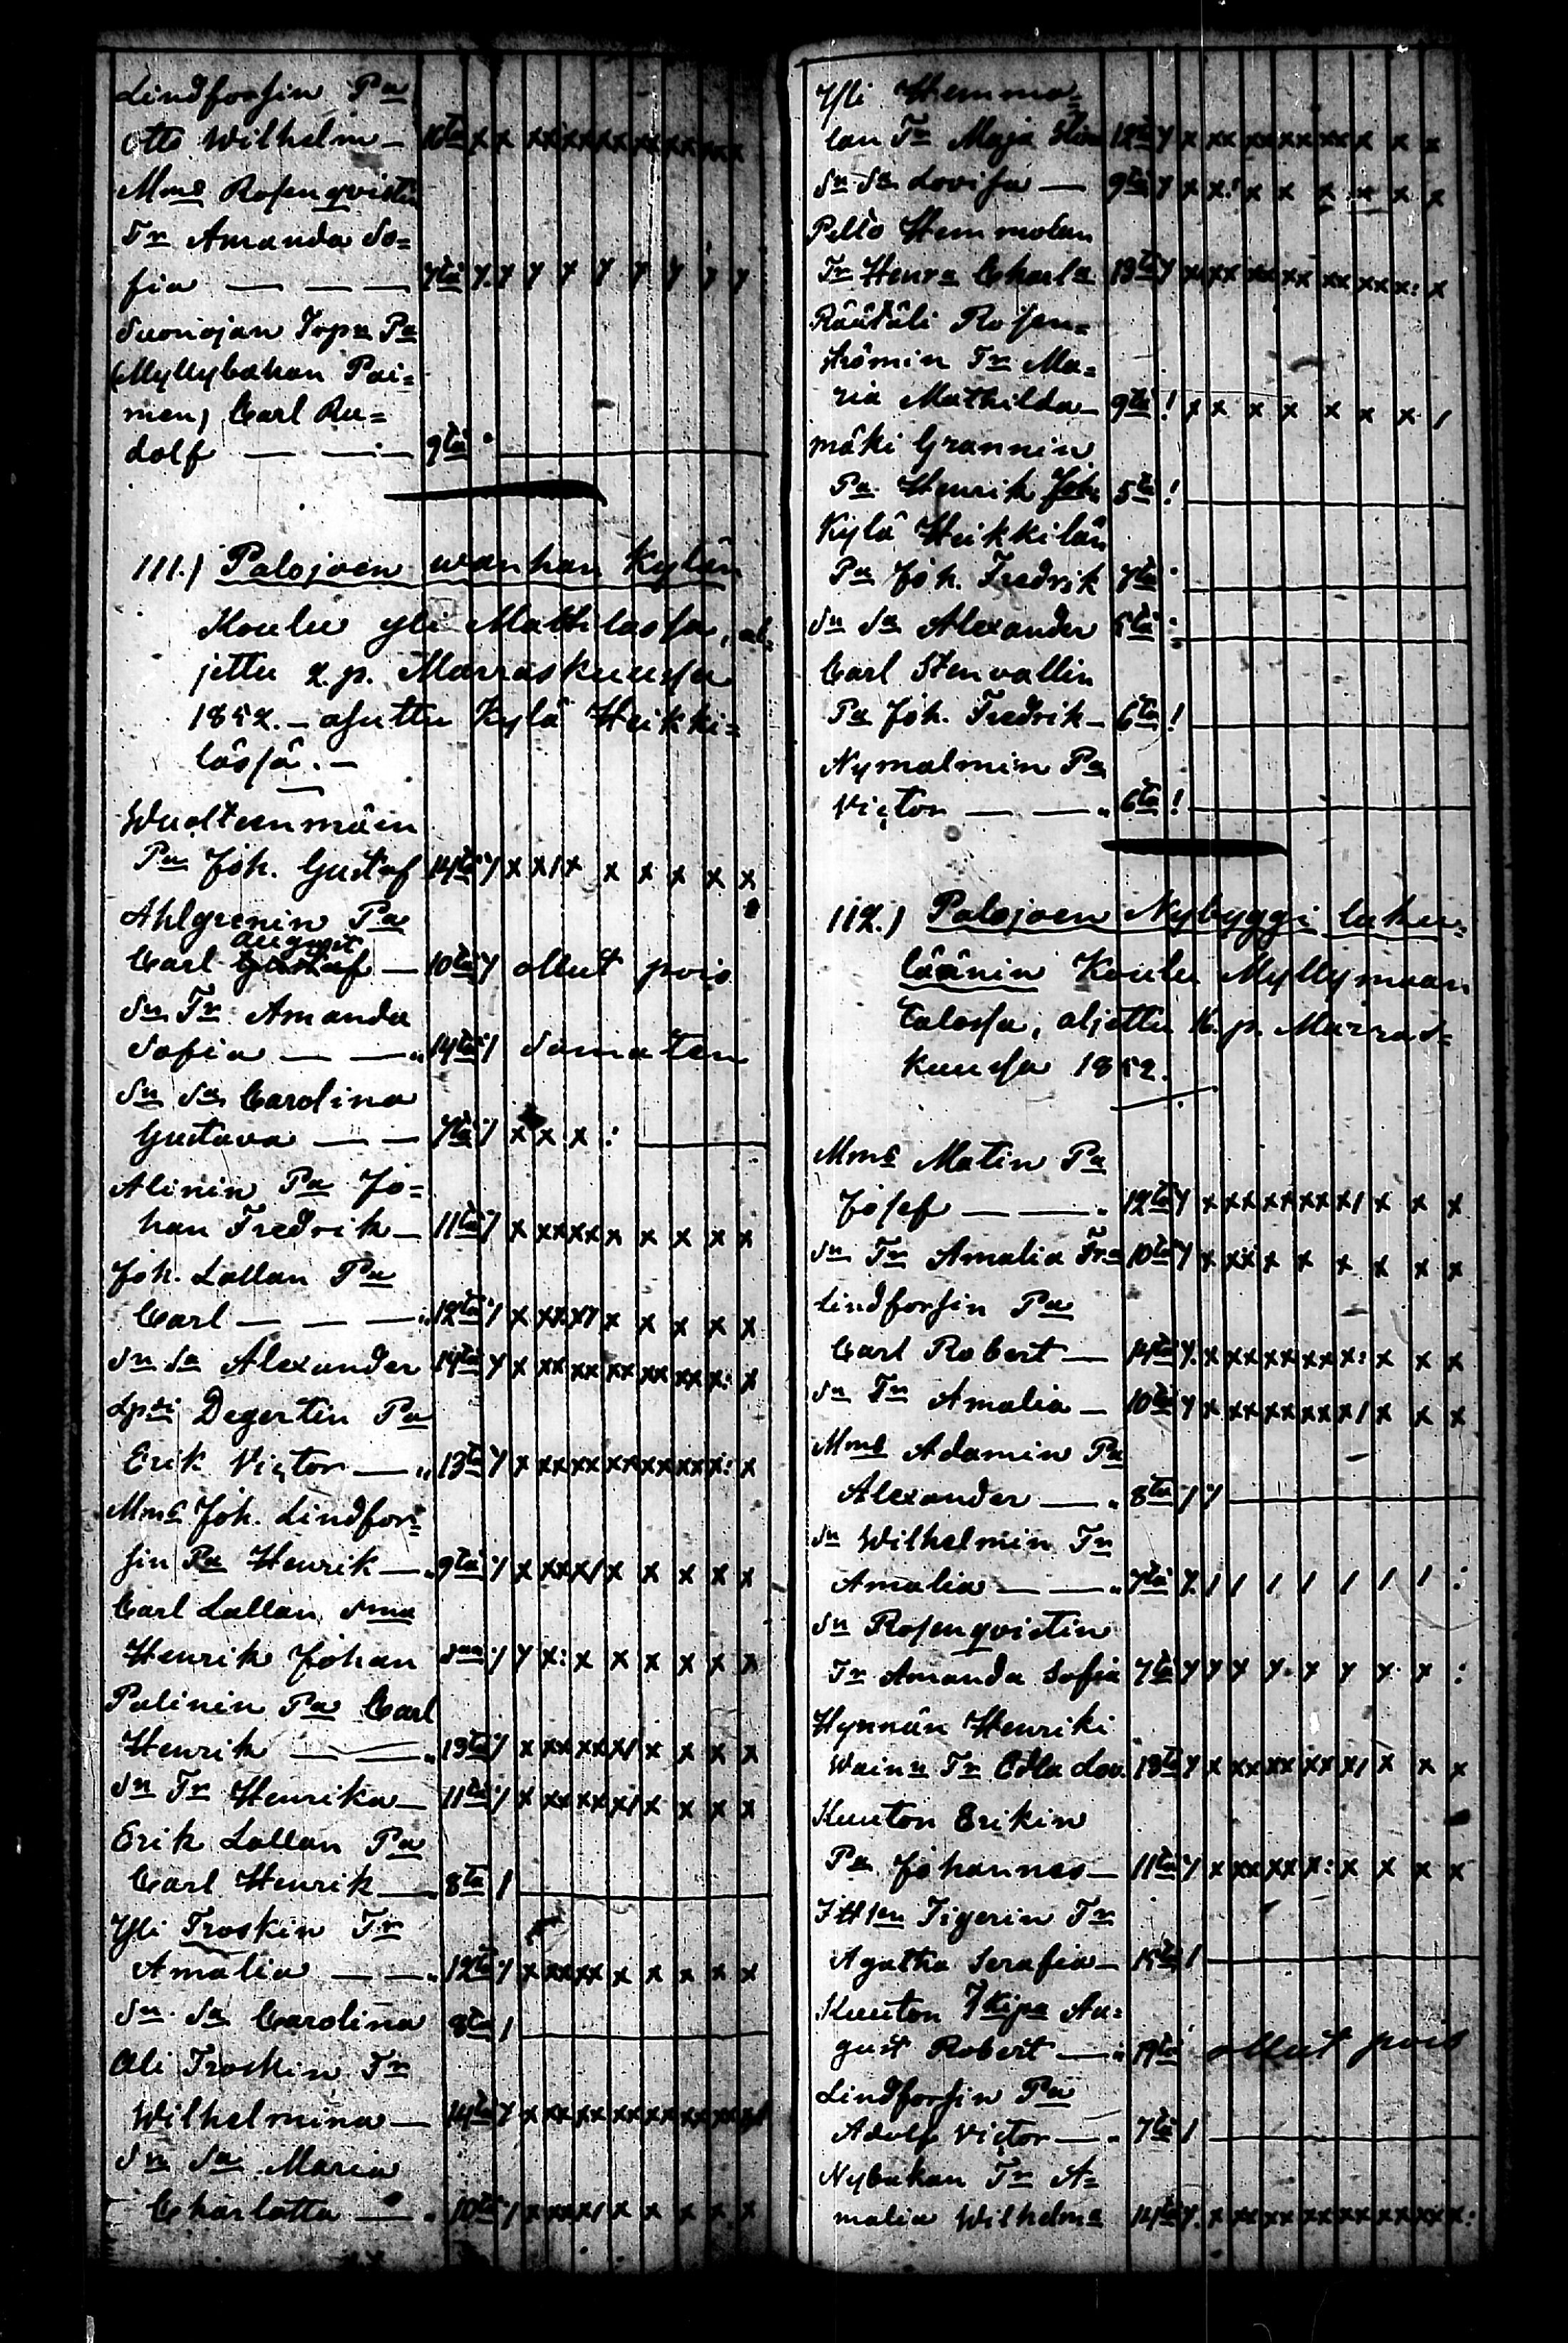 Lindforsin Pa
Otto Wilhelm — 16ta x x xx xx xx xx xx xx
Mms Rosenqvistin
Tr Amanda So=
fia — — — 7tä y. y y y y y y y y
Suonojan Topn Pa
(Myllybakan Pai=
men) Carl Ru=
dolf — — 9tä

111.) Palojoen wanhan Kylän
Koulu yli Mattilassa, al=
jettu 2. p. Marraskuussa
1852. — asuttu Kylä Heikki=
lässä. —

Pa Joh. Gustaf 14ta y x x/x x x x x x
Ahlgrenin Pa
August
Carl Gustaf — 10tä y ollut pois
Sn Tr Amanda
Sofia — — 14tä / Samaten
Sn Sa Carolina
Gustava — — 7tä / x x x :
Alinin Pa Jo=
han Fredrik — 11tä / x xx xx x x x x x
Joh. Lallan Pa
Carl — — — 12tä / x xx x/ x x x x x
Sn Sa Alexander 14tä y x xx xx xx xx xx x: x
Lpti Degertin Pa
Erik Victor — 13ta y x xx xx xx xx xx x: x
Mms Joh. Lindfor=
sin Pa Henrik — 9tä / x xx x/ x x x x x
Carl Lallan Sma
Henrik Johan Sma / y x: x x x x x x
Palinin Pa Carl
Henrik — — 13ta / x xx xx x/ x x x x
Sn Tr Henrika — 11tä / x xx xx x/ x x x x
Erik Lallan Pa
Carl Henrik — 8ta /
Yli Troskin Tr
Amalia — — 12tä / x xx xx x x x x x
Sn Sa Carolina 8ta /
Ali Troskin Tr
Wilhelmina — 14tä y x xx xx xx xx xx xx x/
Sn Sa Maria
Charlotta — 10tä / x xx x/ x x x x x

Yli Hemmo=
lan Tr Maja Stina 12tä y x xx xx xx xx x x x
Sn Sa Lovisa — 9tä y x x: x x x x x x
Pello Hemmolan
Tr Henra Charla 13ta y x xx xx xx xx xx x: x
Räätäli Rosen=
strömin Tr Ma=
ria Mathilda — 9tä ! x x x x x x x /
mäki Grannin
Pa Henrik Joh. 5tä !
Kylä Heikkilän
Pa Joh. Fredrik 7tä
Sn Sa Alexander 5tä :
Carl Stenvallin
Pa Joh. Fredrik — 6ta !
Nymalmin Pa
Victor — — 6ta !

112.) Palojoen Nybyggi luku=
läänin Koulu Myllymaan
talossa, aljettu 16. p. Marras=
kuussa 1852.

Mms Matin Pa
Josef — — 12tä y x xx xx xx x/ x x x
Sn Tr Amalia Fra 10tä y x xx x x x x x x
Lindforsin Pa
Carl Robert — 14tä y. x xx xx xx x: x x x
Sn Tr Amalia — 10tä y x xx xx xx x/ x x x
Mms Adamin Pa
Alexander — 8ta / /
Sn Wilhelmin Tr
Amalia — — 7tä y. / / / / / / / :
Sn Rosenqvistin
Tr Amanda Sofia 7tä y y y y. x y x. x :
Hynnän Henriki
Wainn Tr Edla Lov. 13tä y x xx xx xx x/ x x x
Kuuton Erikin
Pa Johannes — 11tä y x xx xx x: x x x x
Ittsen Tigerin Tr
Agatha Serafia — 15tä /
Kuuton Au=
gust Robert — 19tä ollut pois
Lindforsin Pa
Adolf Victor — 7tä /
Nybakan Tr A=
malia Wilhelma 14tä y. x xx xx xx xx xx xx x: